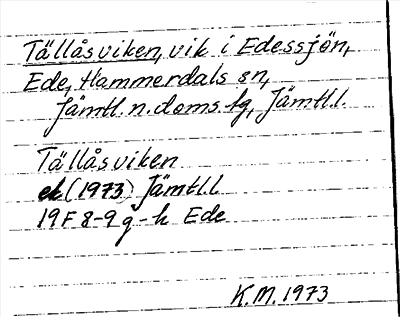 Tällåsviken, vik i Edessjön,
Ede, Hammerdals sn,
Jämtl. n. doms. fg, Jämtl.l.
Tällåsviken
ek (1973) Jämtl.l
19F 8-9 g-h Ede
K.M. 1973